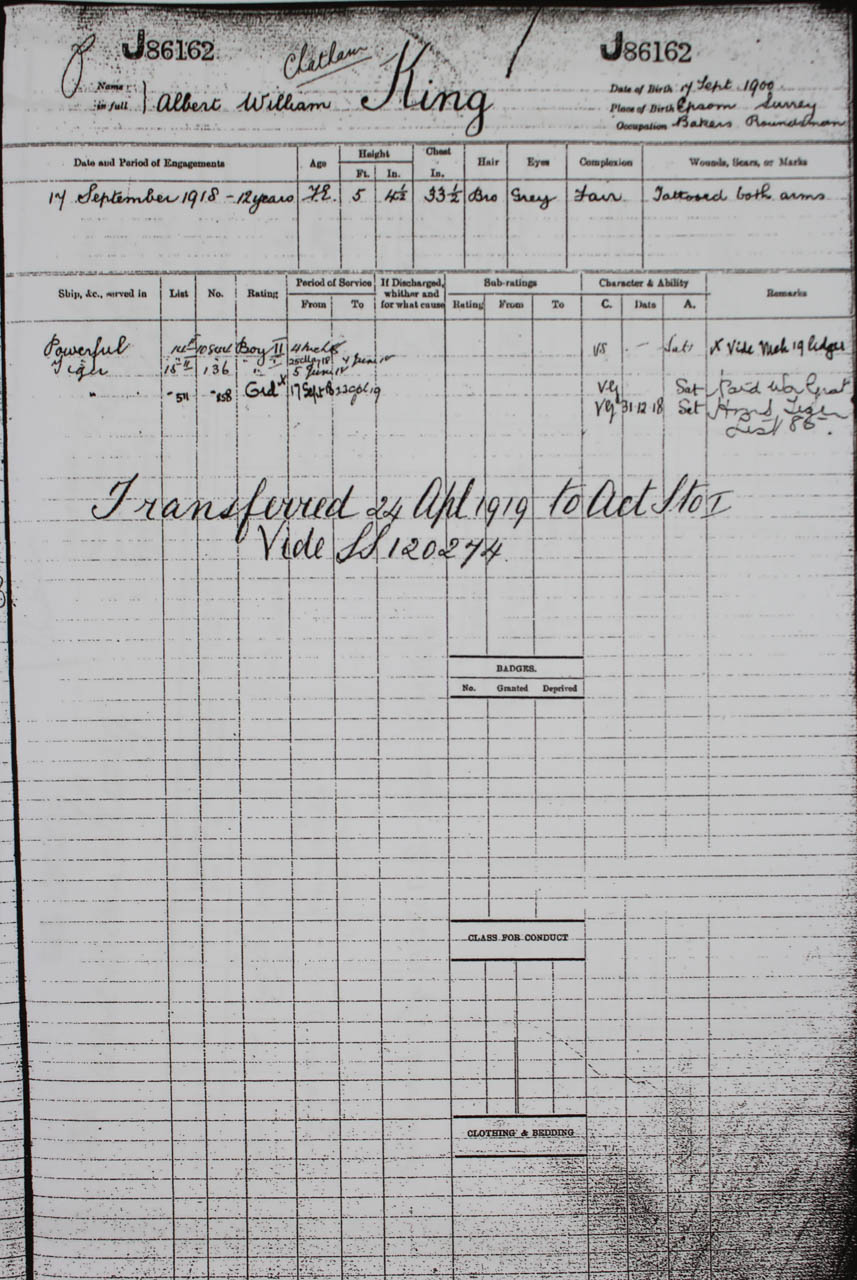 J86162 Chatham J86162
Name in full Albert William King
Date of Birth 17 Sept 1900
Place of Birth Epsom Surrey
Occupation Bakers Roundsman
Date and Period of Engagements Age Height Chest Hair Eyes Complexion Wounds, Scars, or Marks
Ft. In. In.
17 September 1918 - 12 years 5 4½ 33½ Bro Grey Fair Tattooed both arms
Ship, &c., served in List No. Rating Period of Service If Discharged, whither and for what cause Sub-ratings Character & Ability Remarks
From To Rating From To C. Date A.
Powerful Boy II VG - Sat X Vide Mch 19 ledger
Tiger 15II 136 " I 25 May 18 4 June 18
" 5 June 18
" "511 "858 Ord X 17 Sept 18 23 Apl 19 VG Sat Paid War Grat
VG 31.12.18 Sat Tiger
List 86.
Transferred 24 Apl 1919 to Act Sto I
Vide SS 120274.
BADGES.
No. Granted Deprived
CLASS FOR CONDUCT
CLOTHING & BEDDING